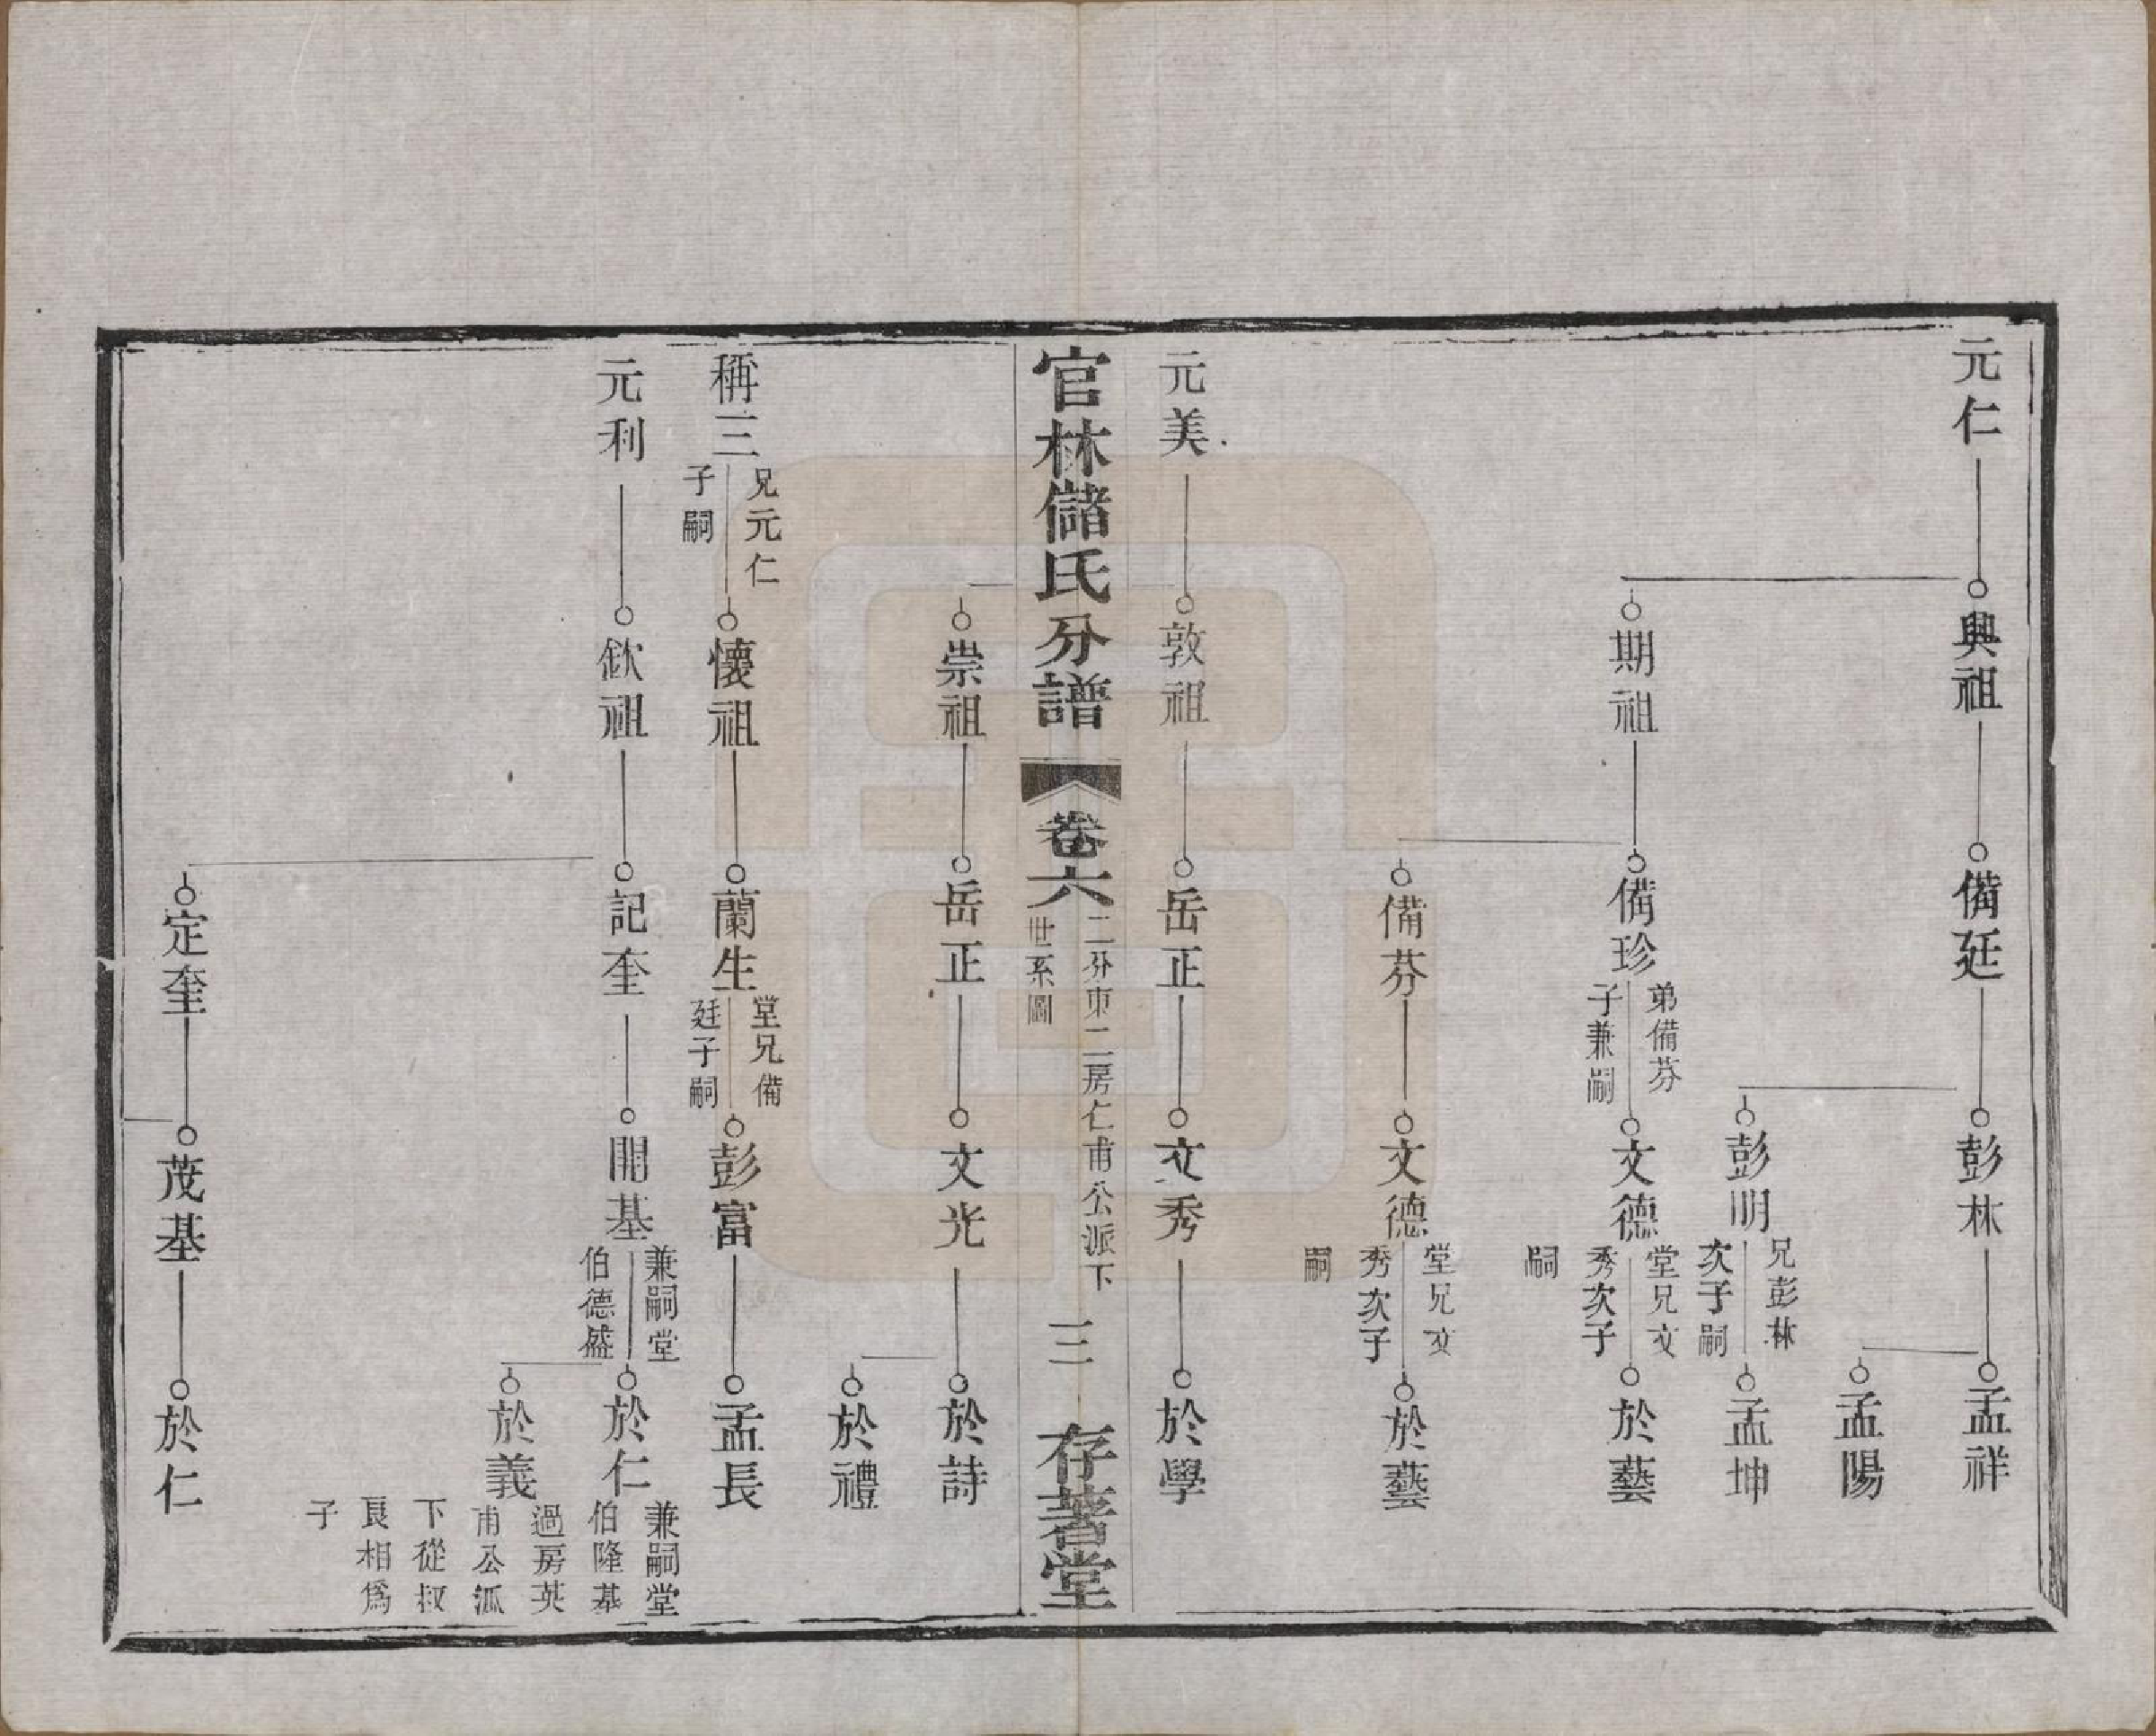 元仁
興祖
備廷
彭林
孟祥
孟陽
彭明
兄彭林
次子嗣
孟坤
期祖
備珍
弟備芬
子兼嗣
文德
堂兄文
秀次子
嗣
於藝
備芬
文德
堂兄文
秀次子
嗣
於藝
元美
敦祖
岳正
文秀
於學
官林儲氏分譜
卷六
二分東二房仁甫公派下
世系圖
三
存著堂
崇祖
岳正
文光
於詩
於禮
稱三
兄元仁
子嗣
懷祖
蘭生
堂兄備
廷子嗣
彭富
孟長
元利
欽祖
記奎
開基
兼嗣堂
伯德盛
於仁
兼嗣堂
伯隆基
過房英
甫公派
下從叔
良相爲
子
於義
定奎
茂基
於仁